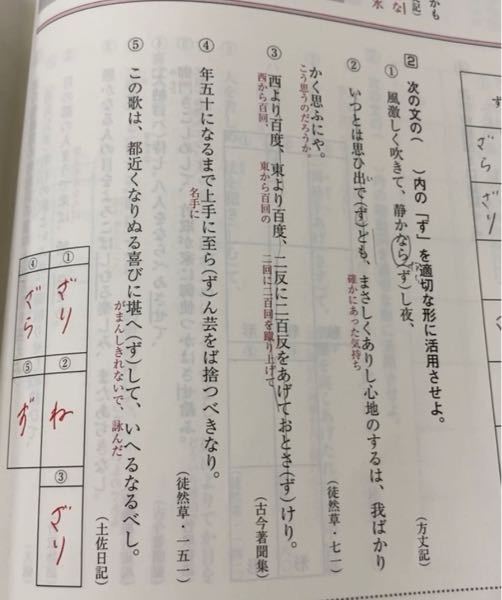 かも
な
水
2 次の文の（　）内の「ず」を適切な形に活用させよ。
① 風激しく吹きて、静かなら（ず）し夜、
（方丈記）
② いつとは思ひ出で（ず）ども、まさしくありし心地のするは、我ばかり
い
確かにあった気持ち
かく思ふにや。
こう思うのだろうか。
（徒然草・七一）
③ 西より百度、東より百度、二反に二百反をあげておとさ（ず）けり。
西から百回、
東から百回の
二回に二百回を蹴り上げて
（古今著聞集）
④ 年五十になるまで上手に至ら（ず）ん芸をば捨つべきなり。
名手に
（徒然草・一五一）
⑤ この歌は、都近くなりぬる喜びに堪へ（ず）して、いへるなるべし。
がまんしきれないで、詠んだ
（土佐日記）
① ざり
② ね
③ ざり
④ ざら
⑤ ず
ざら
ざり